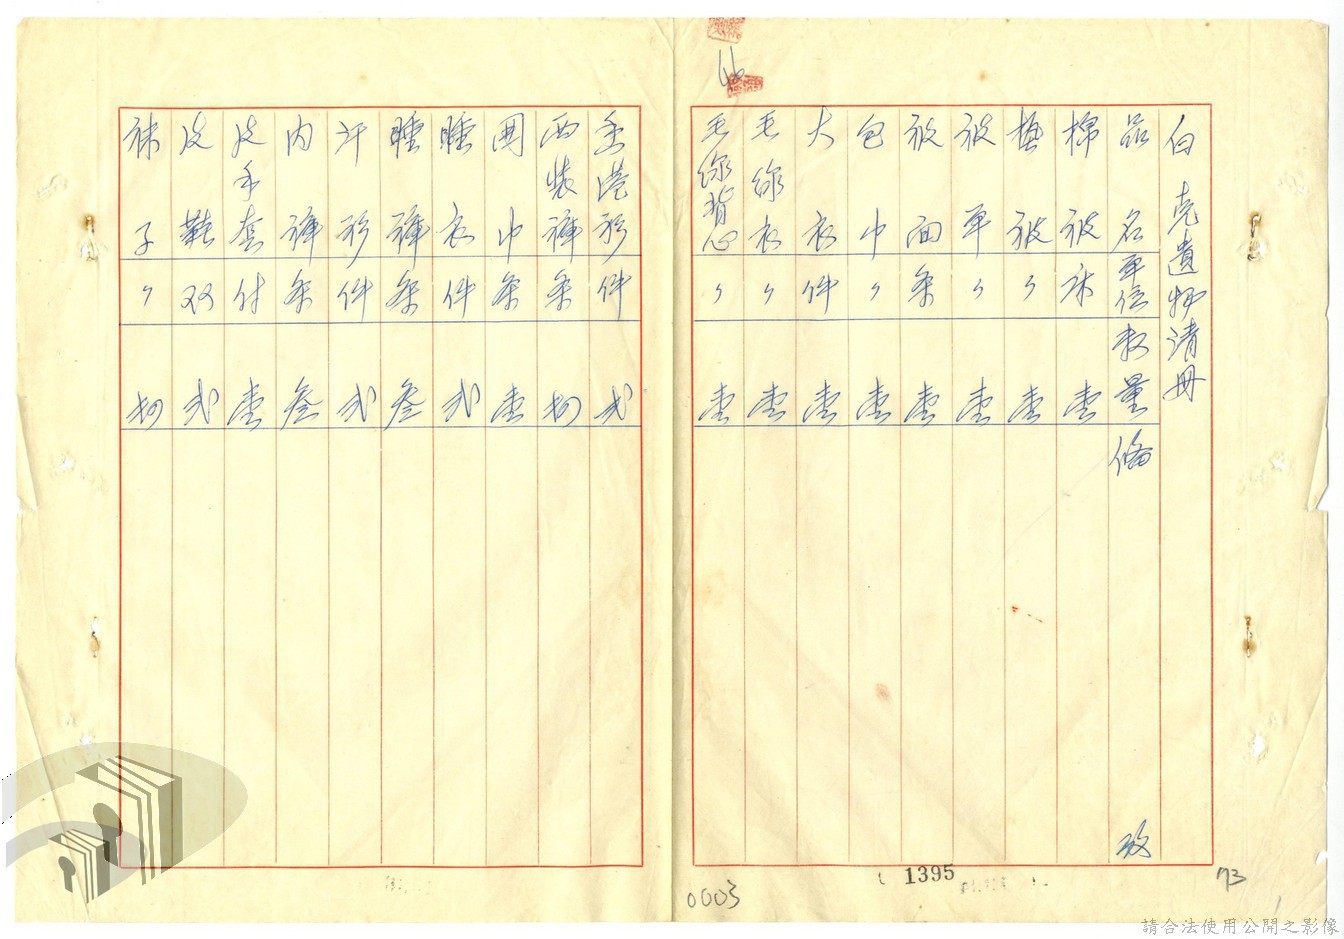 白克遺物清冊
品名 單位 數量 備攷
棉被 床 壹
墊被 〃 壹
被單 〃 壹
被面 条 壹
包巾 〃 壹
大衣 件 壹
毛線衣 〃 壹
毛線背心 〃 壹
香港衫 件 弍
西裝褲 条
圍巾 条 壹
睡衣 件 弍
睡褲 条 叁
汗衫 件 弍
内褲 条 叁
皮手套 付 壹
皮鞋 双 弍
袜子 〃
1395
0003
73
請合法使用公開之影像